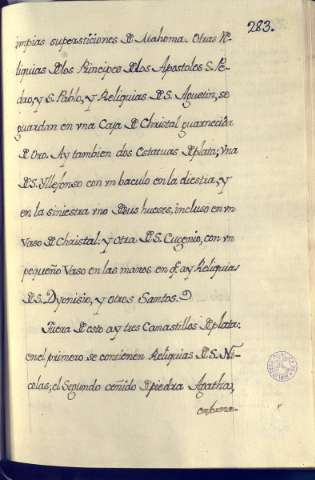 283.
impias supersticiones de Mahoma. Otras Re-
liquias de los Principes de los Apostoles S. Pe-
dro, y S. Pablo, y Reliquias de S. Agustin, se
guardan en vna Caja de Christal guarnecida
de Oro. Ay tambien dos Estatuas de plata; vna
de S. Yllefonso con vn baculo en la diestra, y
en la siniestra vno de sus hueses, incluso en vn
Vaso de Christal: y otra de S. Eugenio, con vn
pequeño Vaso en las manos en q̃ ay Reliquias
de S. Dyonisio, y otros Santos.
Fuera de esto ay tres Canastillos de plata:
en el primero se contienen Reliquias de S. Ni-
colas; el Segundo ceñido de piedra Agatha,